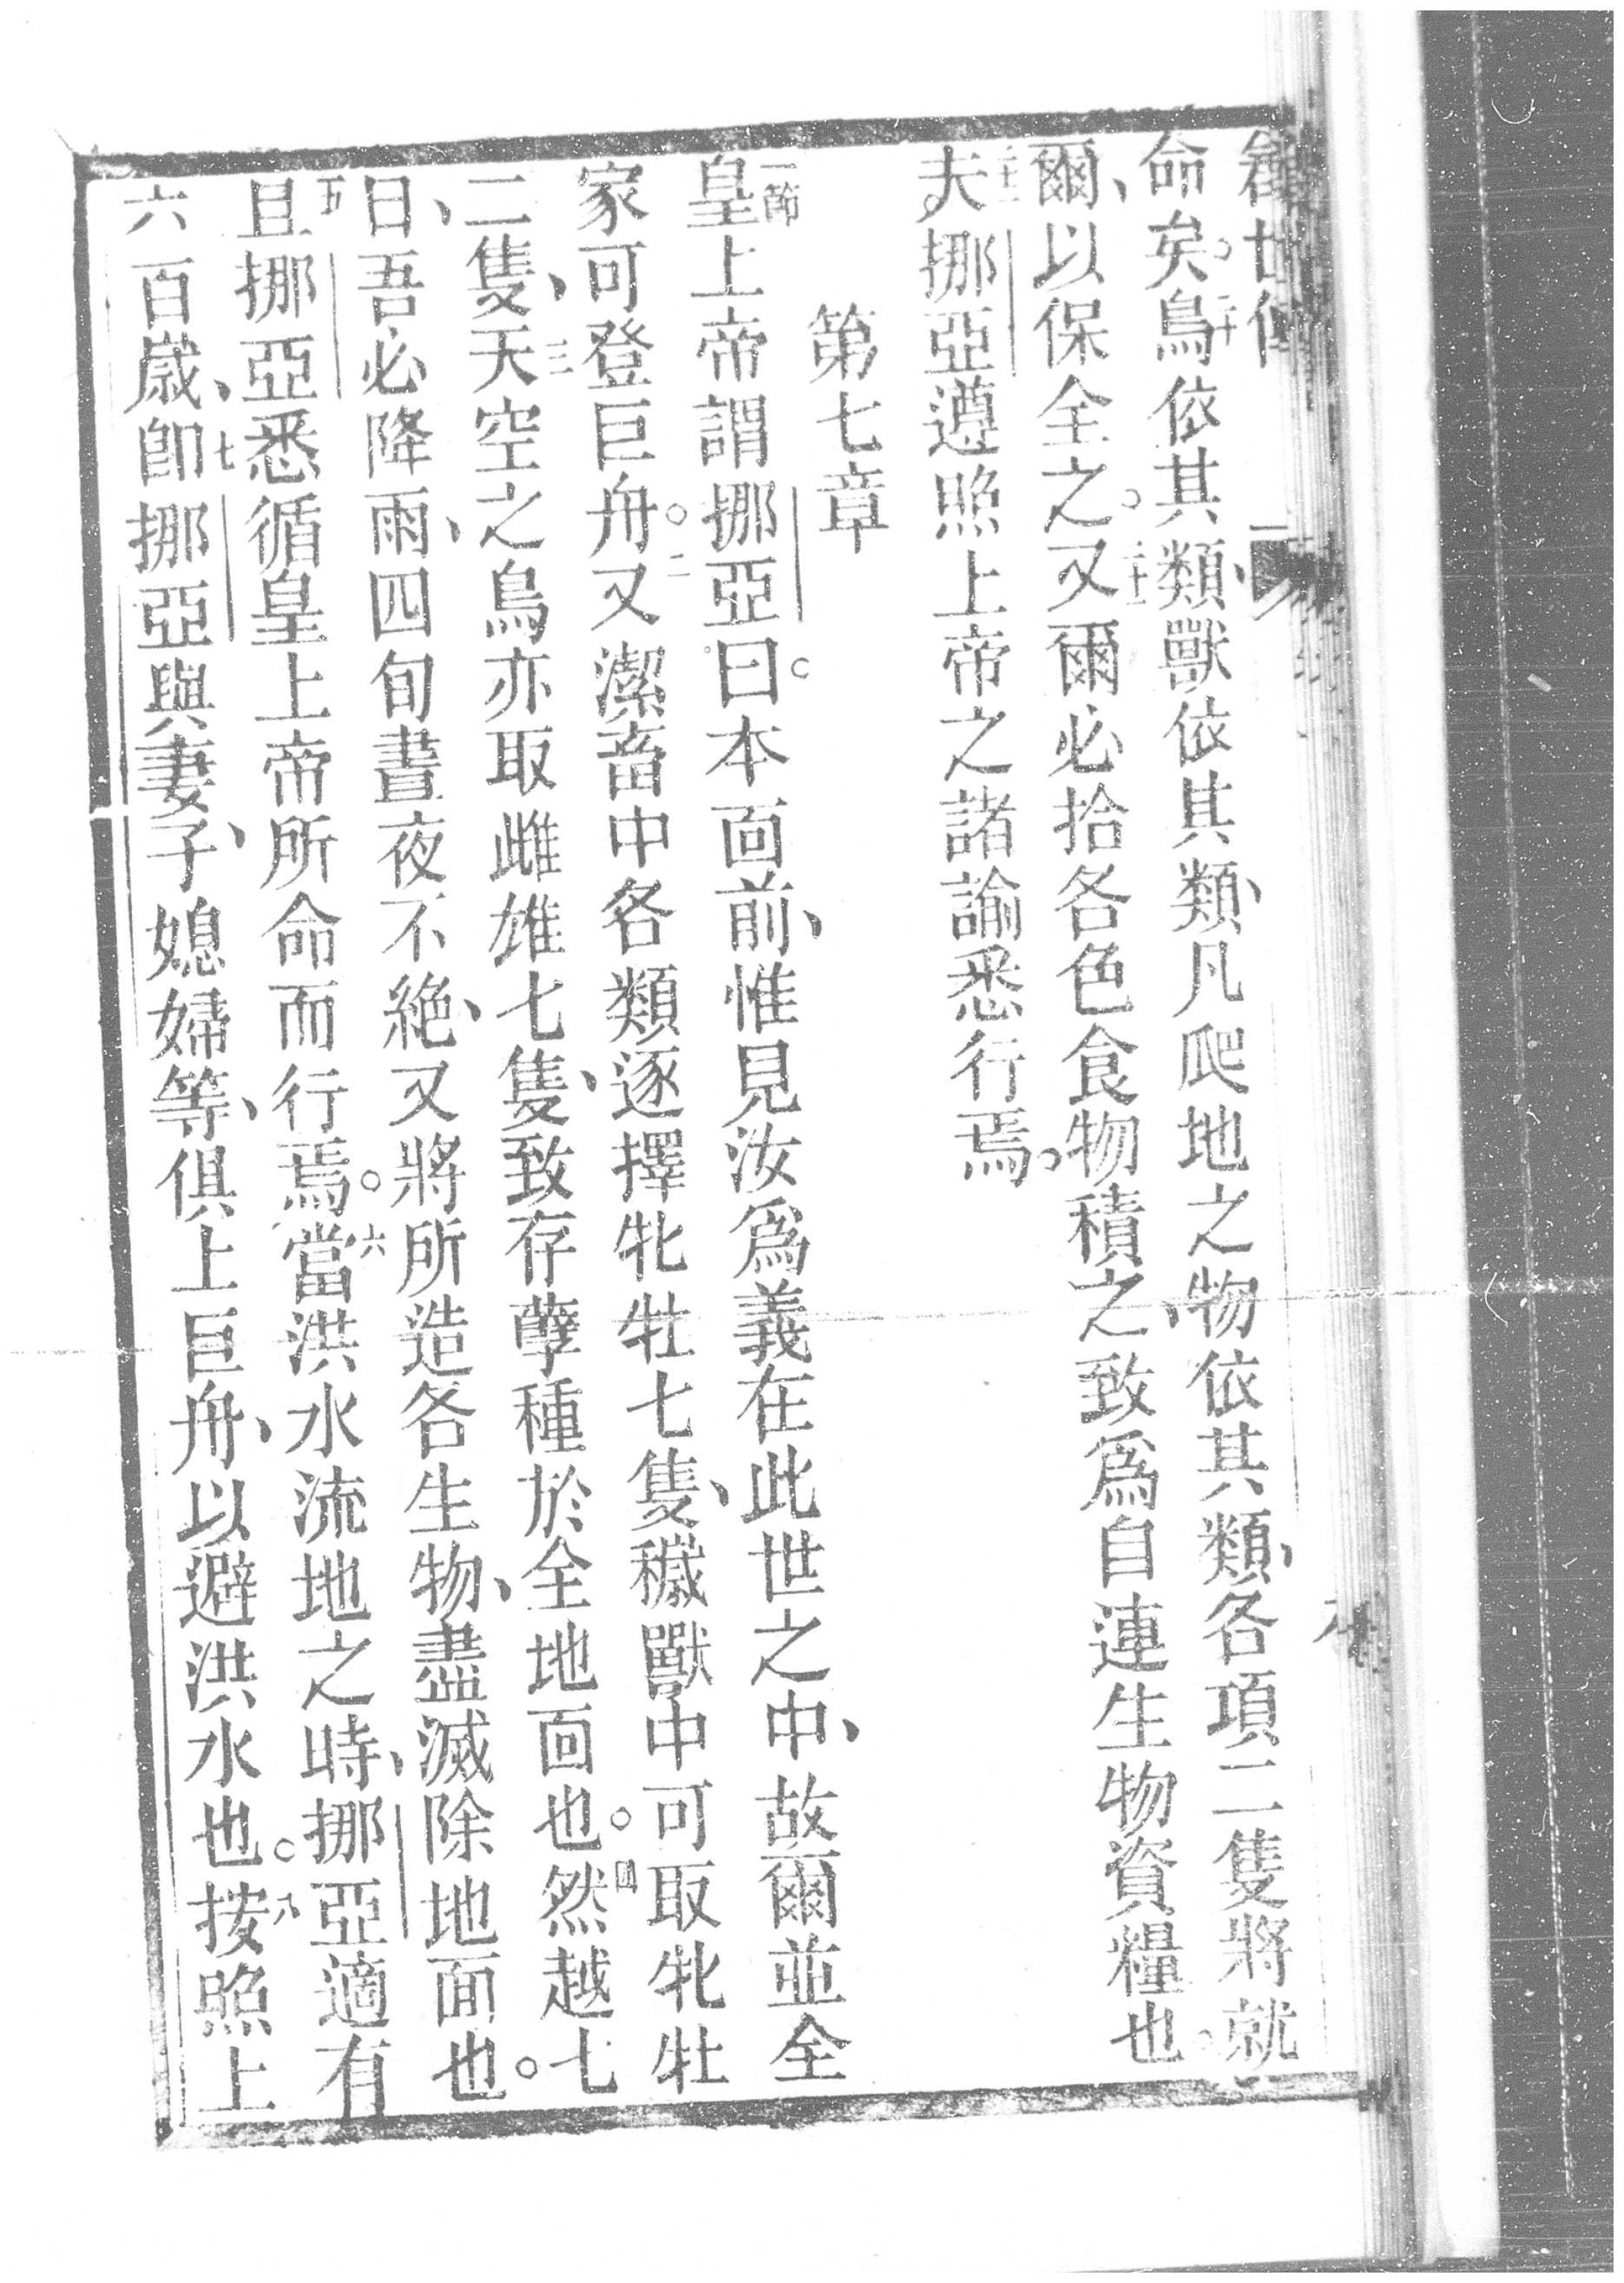 命矣。二十鳥依其類、獸依其類、凡爬地之物依其類、各項二隻將就
爾、以保全之。二十一又爾必拾各色食物積之、致爲自連生物資糧也。
二十二夫挪亞遵照上帝之諸諭悉行焉。
第七章
一節皇上帝謂挪亞曰。本面前、惟見汝爲義在此世之中、故爾並全
家可登巨舟。二又潔畜中各類逐擇牝牡七隻、穢獸中可取牝牡
二隻、三天空之鳥亦取雌雄七隻、致存孽種於全地面也。四然越七
日、吾必降雨、四旬晝夜不絶、又將所造各生物、盡滅除地面也。
五且挪亞悉循皇上帝所命而行焉。六當洪水流地之時、挪亞適有
六百歲、七卽挪亞與妻、子媳婦等、俱上巨舟、以避洪水也。八按照上